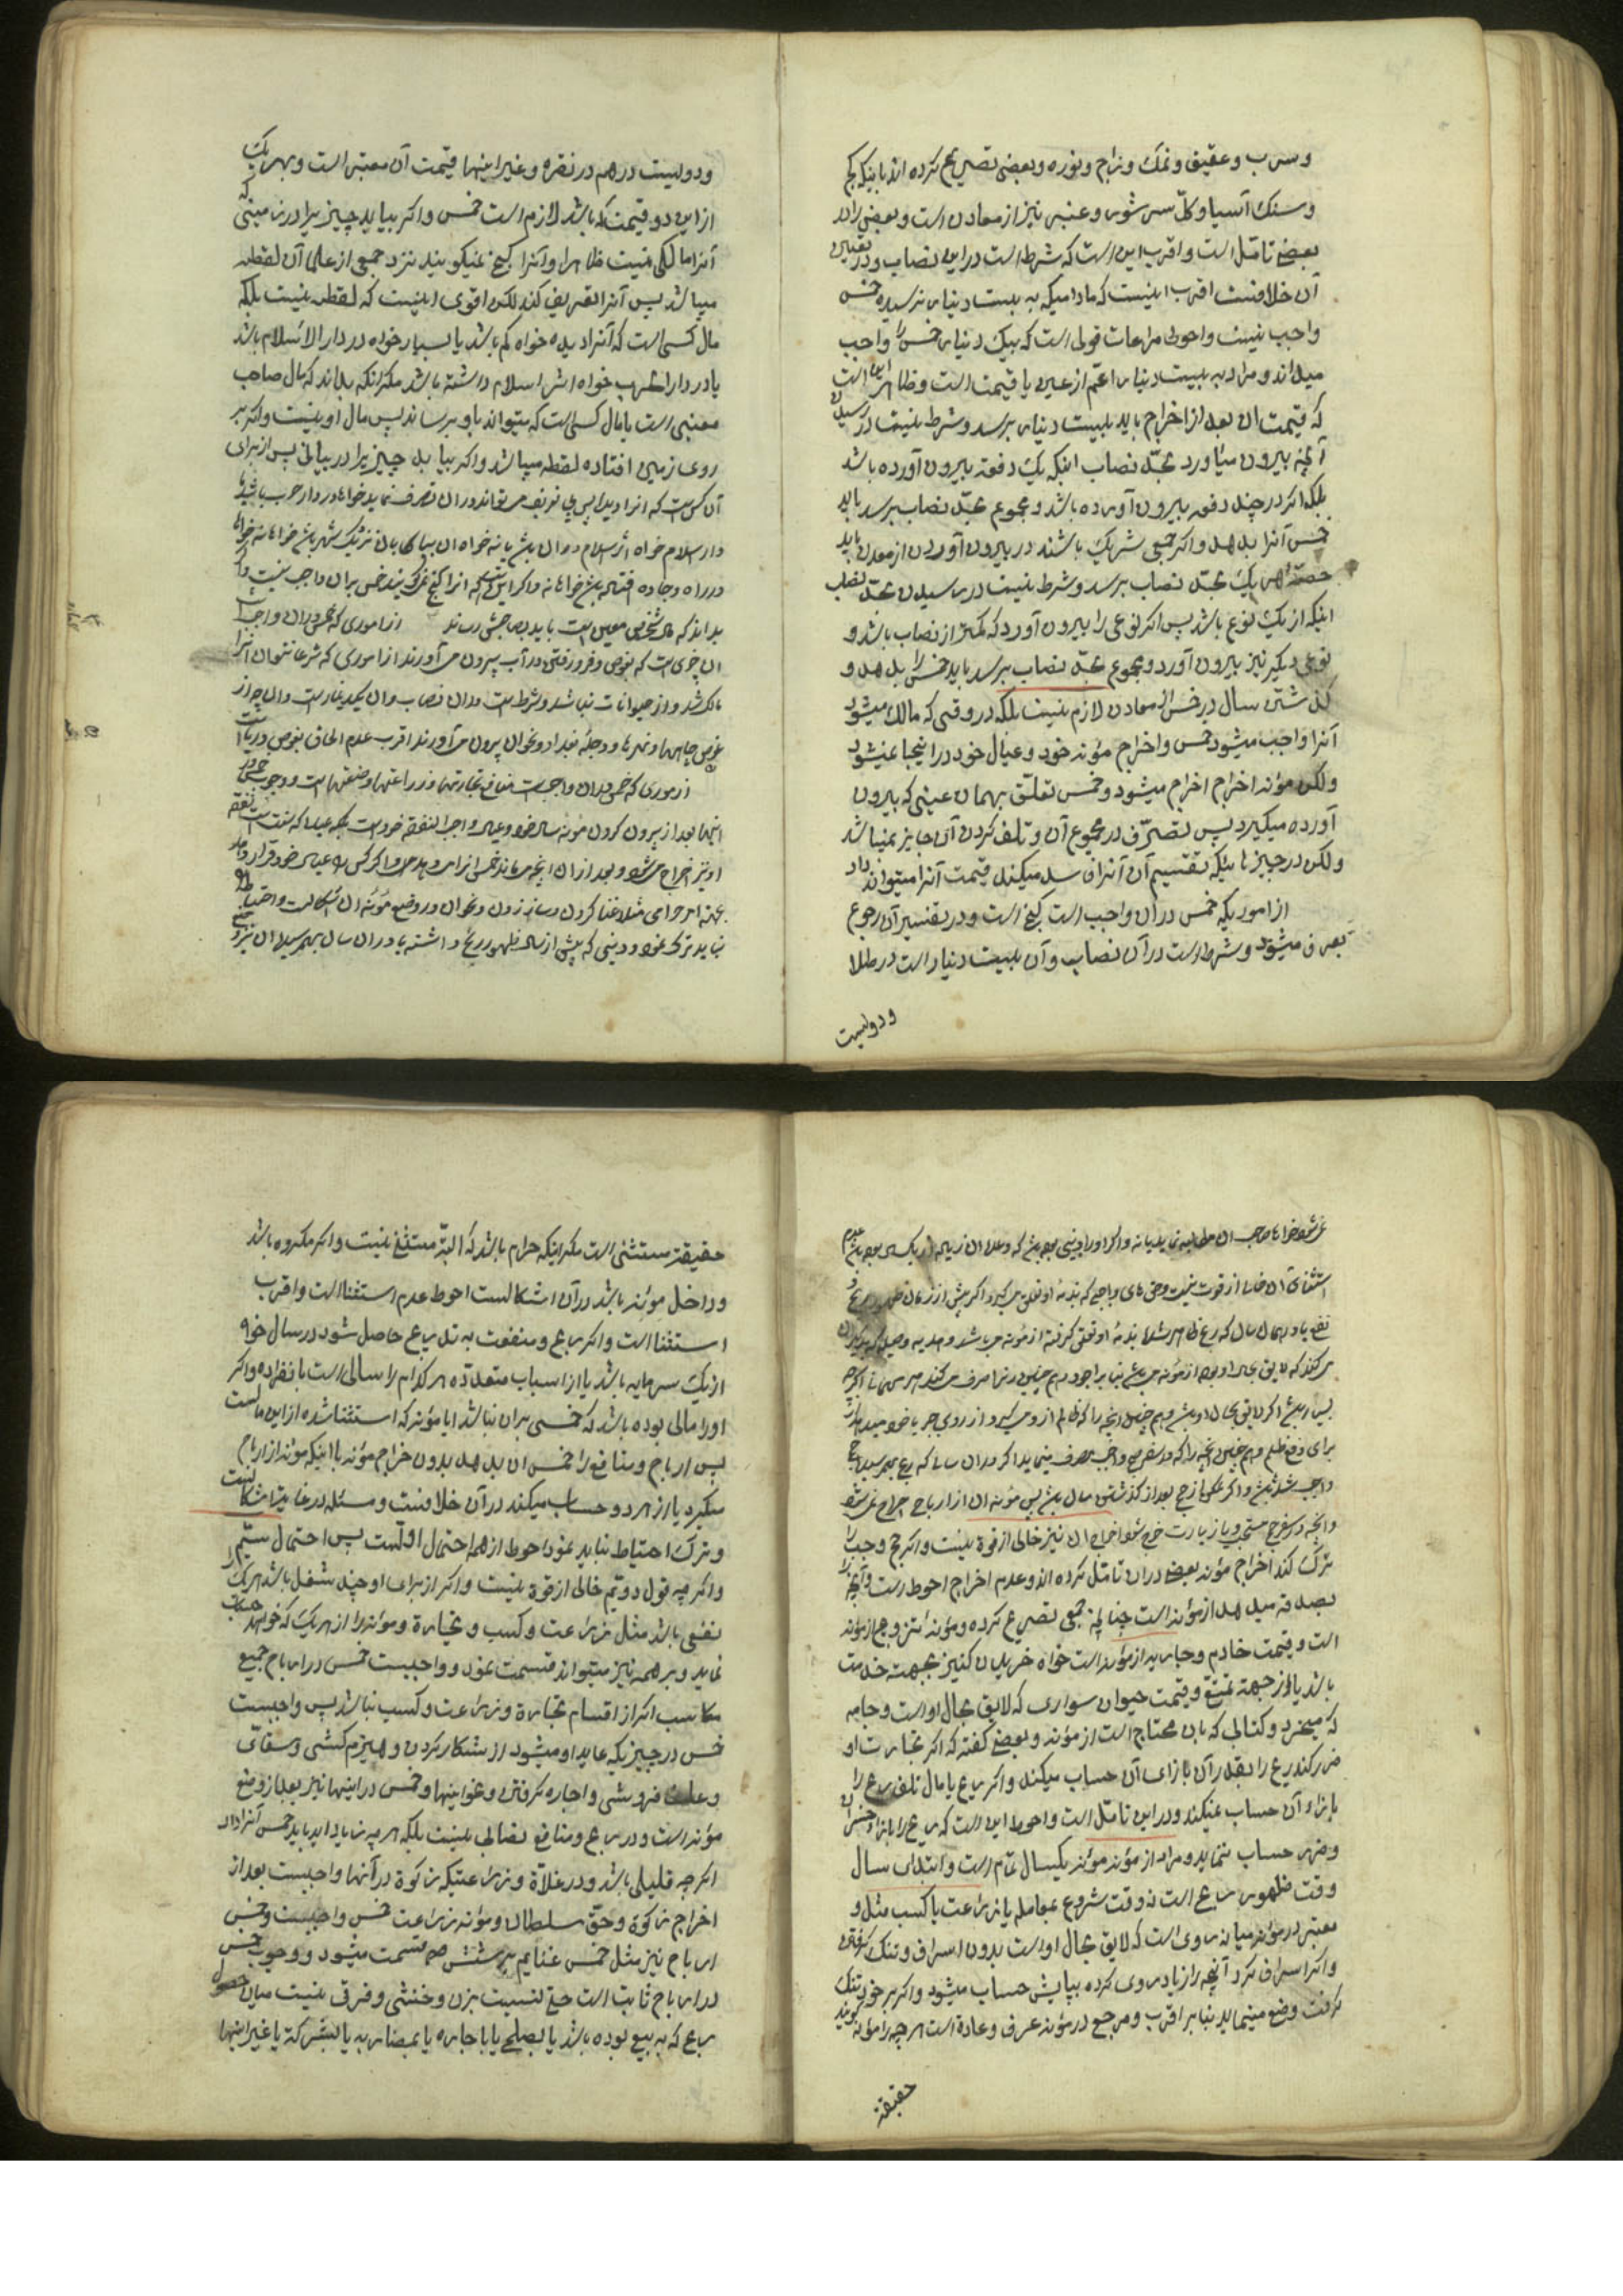 و سرب و عقیق و نمک و زاج و نوره و بعضی تصریح کرده اند باینکه کج
و سنک آسیا و کل سر شوی و عنبر نیز از معادن است و بعضی را در
بعضی تامّل است و اقرب این است که شرط است در این نصاب و در تعیین
آن خلافست اقرب اینست که مادامیکه به بیست دینار نرسیده خمس
واجب نیست و احوط مراعات قولی است که بیک دینار خمس را واجب
میداند و مراد به بیست دینار اعمّ از عین یا قیمت است و ظاهر این است
که قیمت آن بعد از اخراج باید ببیست دینار برسد و شرط نیست در رسیدن
آنچه بیرون میاورد بحدّ نصاب اینکه یک دفعه بیرون آورده باشد
بلکه اکر در چند دفعه بیرون آورده باشد و مجموع بحدّ نصاب برسد باید
خمس آنرا بدهد و اکر جمعی شریک باشند در بیرون آوردن از معدن باید
حصّهٔ هر یک بحدّ نصاب برسد و شرط نیست در رسیدن بحدّ نصاب
اینکه از یک نوع باشد پس اکر نوعی را بیرون آورد که کمتر از نصاب باشد و
نوعی دیکر نیز بیرون آورد و مجموع بحدّ نصاب برسد باید خمس را بدهد و
کذشتن سال در خمس معادن لازم نیست بلکه در وقتی که مالک میشود
آنرا واجب میشود خمس و اخراج مؤنه خود و عیال خود در اینجا نمیشود
ولکن مؤنه اخراج اخراج میشود و خمس تعلّق بهمان عینی که بیرون
آورده میکیرد پس تصرّف در مجموع آن و تلف کردن آن جایز نمیباشد
ولکن در چیزهائیکه تقسیم آن آنرا فاسد میکند قیمت آنرا میتواند داد
از اموریکه خمس در آن واجب است کنج است و در تفسیر آن رجوع
بعرف میشود و شرط است در آن نصاب و آن بیست دینار است در طلا
ودولیست
ودولیست درهم در نقره و غیر اینها قیمت آن معتبر است و بهر یک
از این دو قیمت که باشد لازم است خمس و اکر بیابد چیزیرا در زمینی که
آنرا مالکی نیست ظاهرا و آنرا کنج نمیکویند نزد جمعی از علما آن لقطه
میباشد پس آنرا تعریف کند لکن اقوی اینست که لقطه نیست بلکه
مال کسی است که آنرا دیده خواه کم باشد یا بسیار خواه در دار الاسلام باشد
یا در دار الحرب خواه اثر اسلام داشته باشد مکر آنکه بداند که مال صاحب
معینی است یا مال کسی است که میتواند باو برساند پس مال او نیست و اکر بر
روی زمین افتاده لقطه میباشد و اکر بیابد چیزیرا در بیابانی پس از برای
آن کس است که انرا دیده پس بی تعریف میتواند در آن تصرف نماید خواه در دار حرب باشد یا
دار اسلام خواه اثر اسلام در آن باشد یا نه خواه ان بیابان نزدیک شهر باشد خواه نه خواه
در راه و جاده افتاده باشد خواه نه و اکر این که انرا کنج نمیکویند خمس بر ان واجب نیست و اکر
بداند که مال شخص معین است باید بصاحبش رساند از اموری که خمس در ان واجب است
ان چیزی است که بغوص و فرو رفتن در آب بیرون می آورند از اموری که شرعا بتوان آنرا
مالک شد و از حیوانات نباشد و شرط است در ان نصاب و ان یک دینار است و ان چه از
غوص چاهها و نهرها و دجله بغداد و نحو ان بیرون می آورند اقرب عدم الحاق بغوص دریا است
از اموری که خمس در ان واجب است منافع تجارتها و زراعتها و صنعتها است و وجوب خمس در
اینها بعد از بیرون کردن مؤنه سال خود و عیال واجب النفقه خود است بلکه عیالی که نفقه
او نیز اخراج میشود و بعد از ان انچه میماند خمس از ان میدهد و اکر کس عیال خود قرار داده
بجهة امر حرامی مثل غنا کردن و ساز زدن و نحو ان در وضع مؤنه ان اشکالست و احتیاط
نباید ترک نمود و دینی که پیش از سال ظهور ربح داشته یا در ان سال بهم رسیده ان نیز وضع
میشود خواه صاحب ان مطالبه نماید یا نه و اکر او را دینی بوده باشد که وعده ان زیاده از یکسال بوده باشد عدم
استثنای آن خالی از قوت نیست و خمس های واجبی که بذمه او تعلق میکیرد اکر پیش از زمان ظهور ربح
نفع یا در همان سال که ربح ظاهر شد بذمهٔ او تعلق کرفته از مؤنه میباشد و هدیه و صله که بدیکران
میکند که لایق حال او بوده از مؤنه میباشد بنابر اجود و هم چنین در مهمانی اکر چه
بسیار باشد اکر لایق بحال او باشد و هم چنین انچه را که ظالم از او میکیرد از روی جبر یا خود میدهد
برای دفع ظلم و هم چنین انچه را که در سفر حج واجب صرف مینماید اکر در ان سالی که ربح بهم رسید حج
واجب شده باشد و اکر حج بعد از کذشتن سال باشد پس مؤنه ان از ارباح اخراج نمیشود
و انچه در سفر حج مستحب و یا زیارت خرج شود اخراج ان نیز خالی از قوة نیست و اکر حج واجب را
ترک کند اخراج مؤنه بعضی در ان تامّل کرده اند و عدم اخراج احوط است و آنچه را
بصدقه میدهد از مؤنه است چنانچه جمعی تصریح کرده و مؤنه تزویج از مؤنه
است و قیمت خادم و جاریه از مؤنه است خواه خریدن کنیز بجهت خدمت
باشد یا از جهة تمتّع و قیمت حیوان سواری که لایق بحال او است و جامه
که میخرد و کتابی که بان محتاج است از مؤنه و بعضی کفته که اکر تجارت او
ضرر کند ربح را بقدر آن بازای آن حساب میکند و اکر ربح یا مال تلف ربح را
بازاء آن حساب نمیکند و در این تامّل است و احوط این است که ربح را بازاء خسران
و ضرر حساب ننماید و مراد از مؤنه مؤنه یکسال تمام است و ابتداء سال
وقت ظهور ربح است نه وقت شروع بمعامله یا زراعت یا کسب مثلا و
معتبر در مؤنه میانه روی است که لایق بحال او است بدون اسراف و تنک کرفتن
و اکر اسراف کرد آنچه را زیاده روی کرده بپایش حساب میشود و اکر بر خود تنک
کرفت وضع مینماید بنابر اقرب و مرجع در مؤنه عرف و عادة است هر چه را مؤنه کویند
حقیقة
حقیقة مستثنی است مکر اینکه حرام باشد که البتّه مستثنی نیست و اکر مکروه باشد
و داخل مؤنه باشد در آن اشکالست احوط عدم استثنا است و اقرب
استثنا است و اکر ربح و منفعت به تدریج حاصل شود در سال خواه
از یک سرمایه باشد یا از اسباب متعدّده هر کدام را سالی است بانفراده و اکر
او را مالی بوده باشد که خمسی بر ان نباشد ایا مؤنه که استثنا شده از این مالست
پس ارباح و منافع را خمس ان بدهد بدون اخراج مؤنه یا اینکه مؤنه از ارباح
میکیرد یا از هر دو حساب میکند در آن خلافست و مسئله در غایت اشکالست
و ترک احتیاط نباید نمود احوط از همه احتمال اوّلست پس احتمال سیّم
و اکر چه قول دویّم خالی از قوة نیست و اکر از برای او چند شغل باشد که هر یک را
نفعی باشد مثل زراعت و کسب و تجارة و مؤنه را از هر یک که خواهد حساب
نماید و بر همه نیز میتواند قسمت نمود و واجبست خمس در ارباح جمیع
مکاسب اکر از اقسام تجارة و زراعت و کسب نباشد پس واجبست
خمس در چیزیکه عاید او میشود از شکار کردن و هیزم کشی و سقائی
و علف فروشی و اجاره کرفتن و نحو اینها و خمس در اینها نیز بعد از وضع
مؤنه است و در ربح و منافع نصابی نیست بلکه هر چه زیاد اید باید خمس آنرا داد
اکرچه قلیلی باشد و در غلاّة و زراعتیکه زکوة در آنها واجبست بعد از
اخراج زکوة و حقّ سلطان و مؤنه زراعت خمس واجبست و خمس
ارباح نیز مثل خمس غنایم بر شش سهم قسمت میشود و وجوب خمس
در ارباح ثابت است حتّی نسبت بزن و خنثی و فرقی نیست میان حصول
ربح که به بیع بوده باشد یا بصلح یا باجاره یا بمضاربه یا بشرکة یا غیر اینها